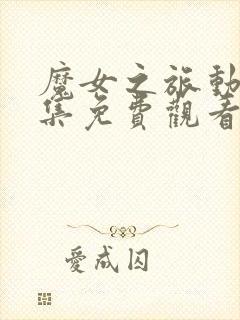 魔女之旅動
集免費觀看
愛成囚